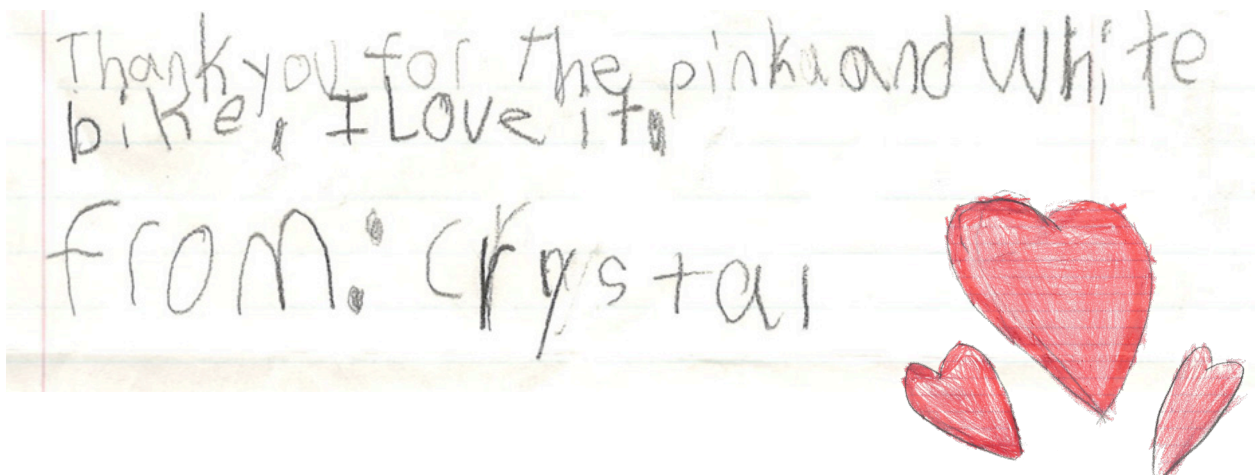 Thank you for the pink and White
bike. I Love it.
from: Crystal